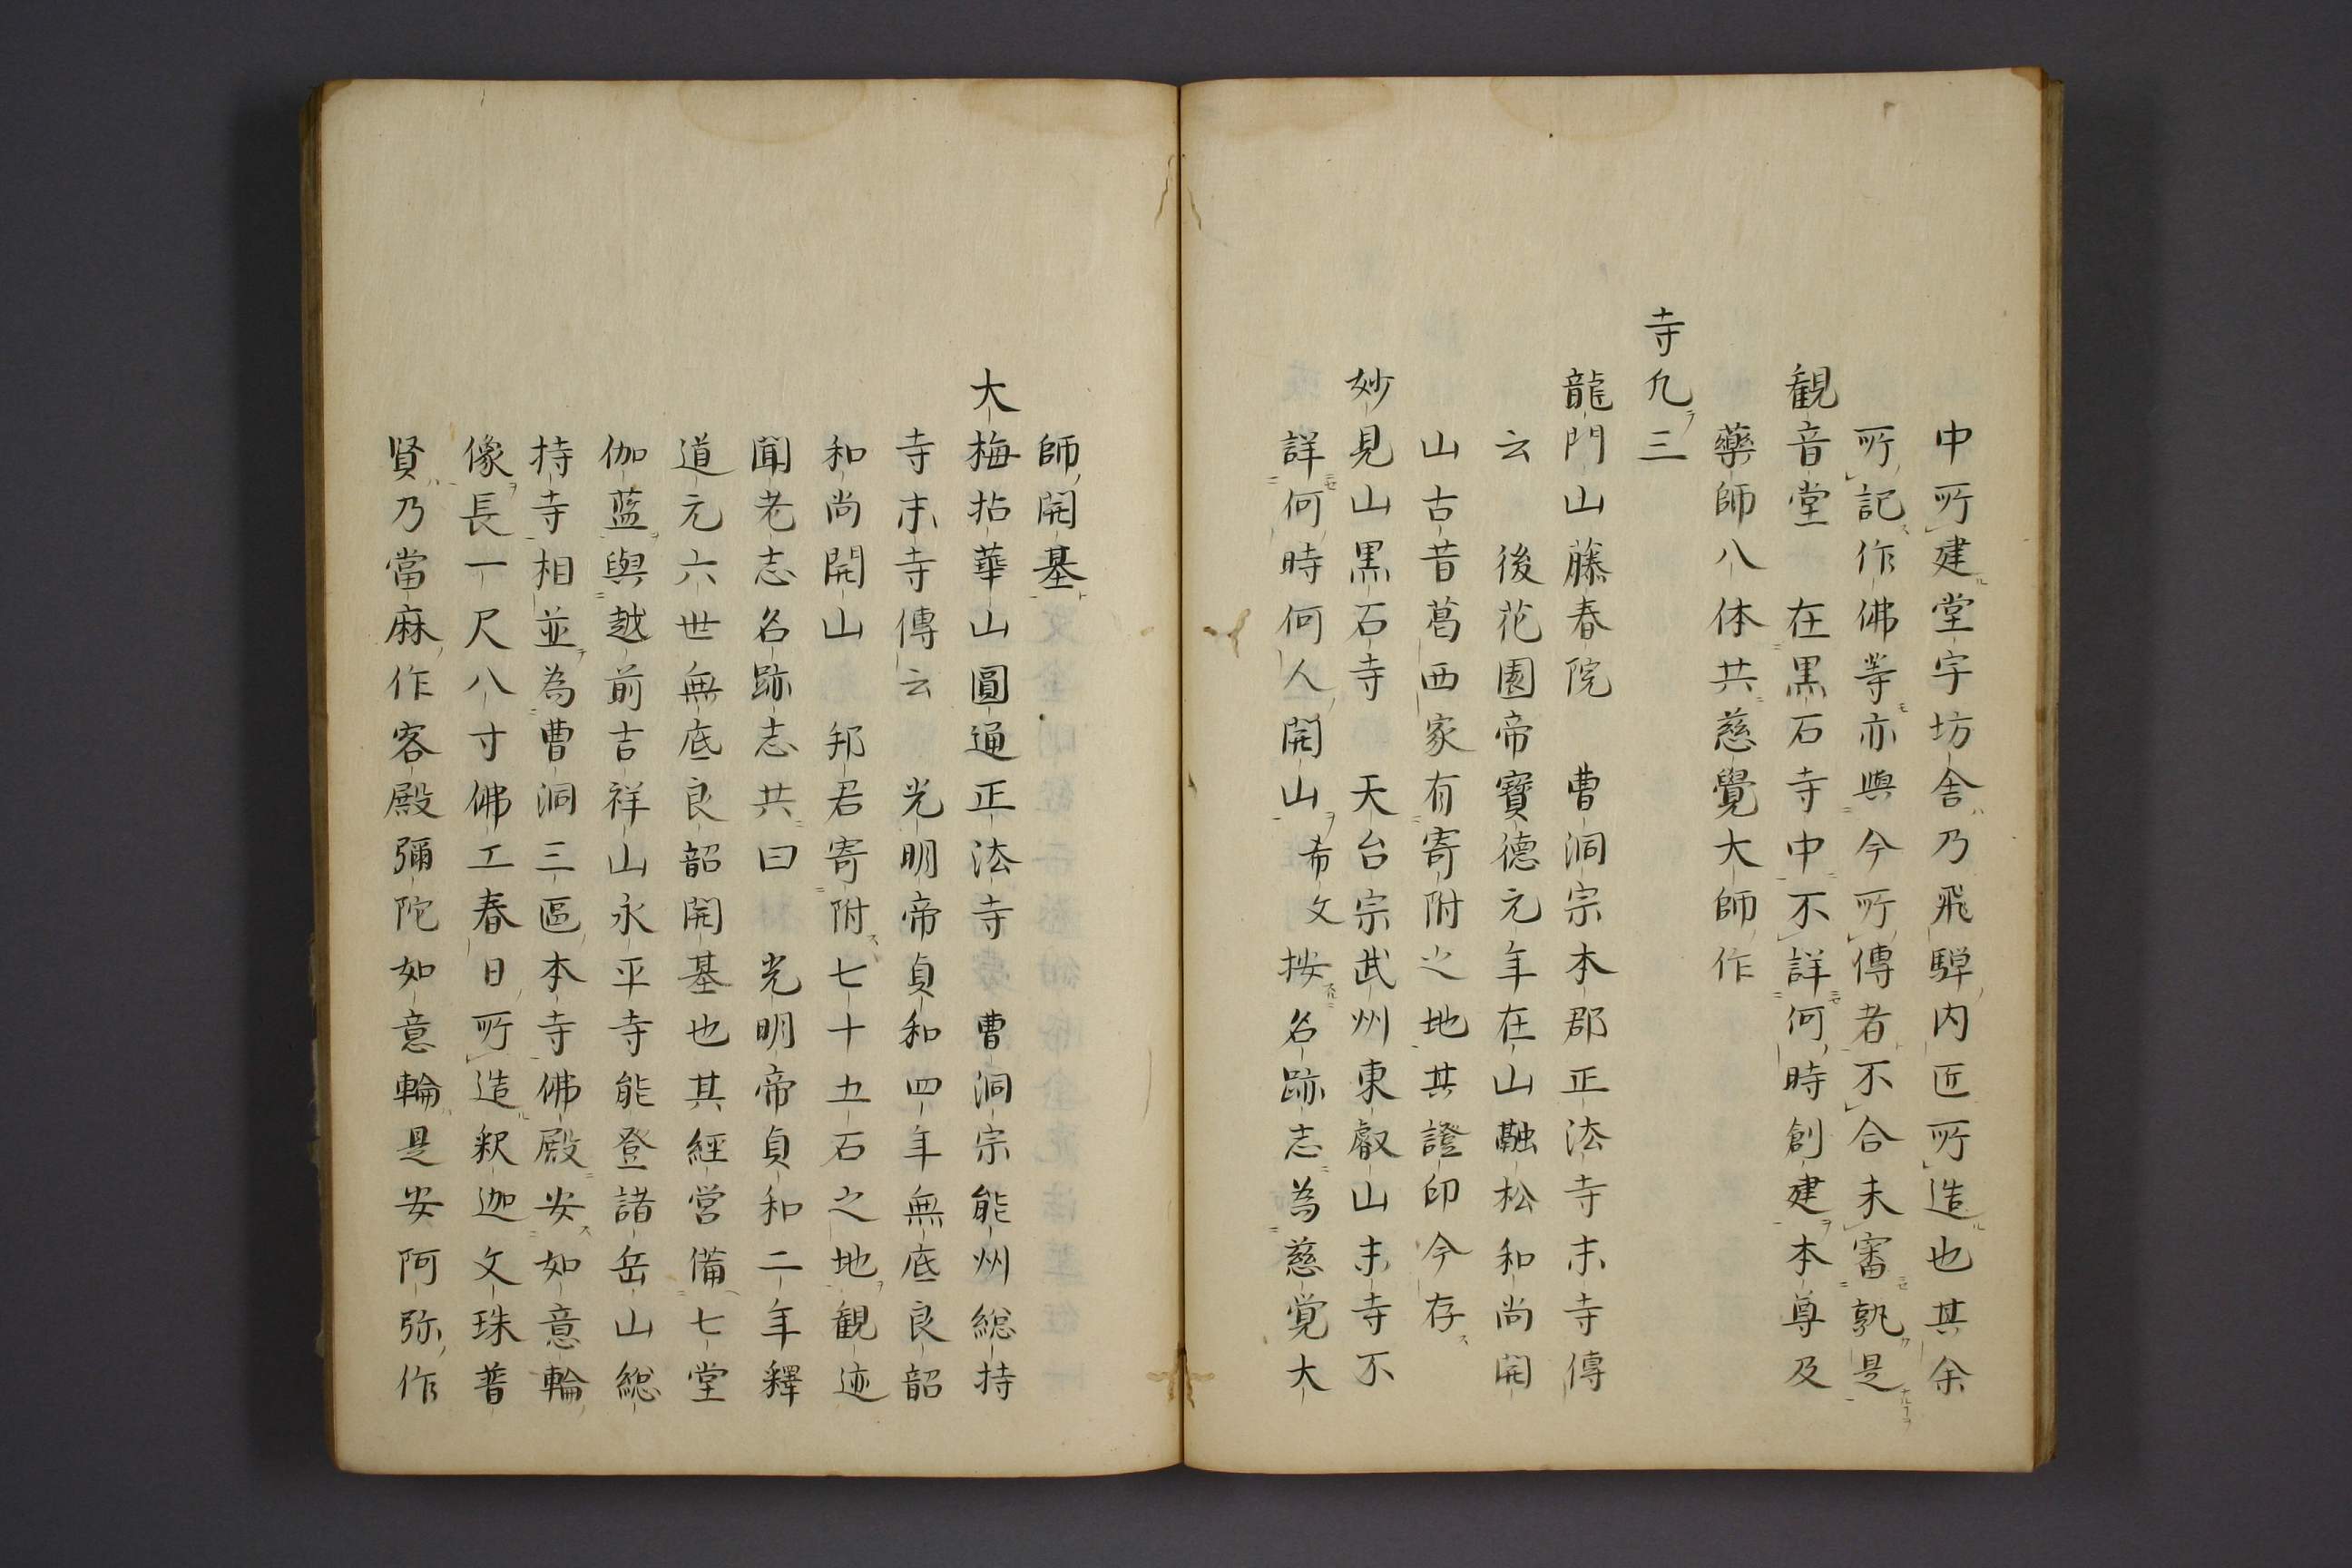 中所建堂宇坊舎乃飛騨内匠所造也其余
所記作佛等亦與今所傳者不合未審孰是
観音堂　在黒石寺中不詳何時創建本尊及
藥師八体共慈覺大師作
寺凢三
龍門山藤春院　曹洞宗本郡正法寺末寺傳
云　後花園帝寶德元年在山融松和尚開
山古昔葛西家有寄附之地其證印今存
妙見山黒石寺　天台宗武州東叡山末寺不
詳何時何人開山希文按名跡志為慈覚大
師開基
大梅拈華山圓通正法寺　曹洞宗能州総持
寺末寺傳云　光明帝貞和四年無底良韶
和尚開山　邦君寄附七十五石之地観迹
聞老志名跡志共曰　光明帝貞和二年釋
道元六世無底良韶開基也其經営備七堂
伽藍與越前吉祥山永平寺能登諸岳山総
持寺相並為曹洞三區本寺佛殿安如意輪
像長一尺八寸佛工春日所造釈迦文珠普
賢乃當麻作客殿彌陀如意輪是安阿弥作